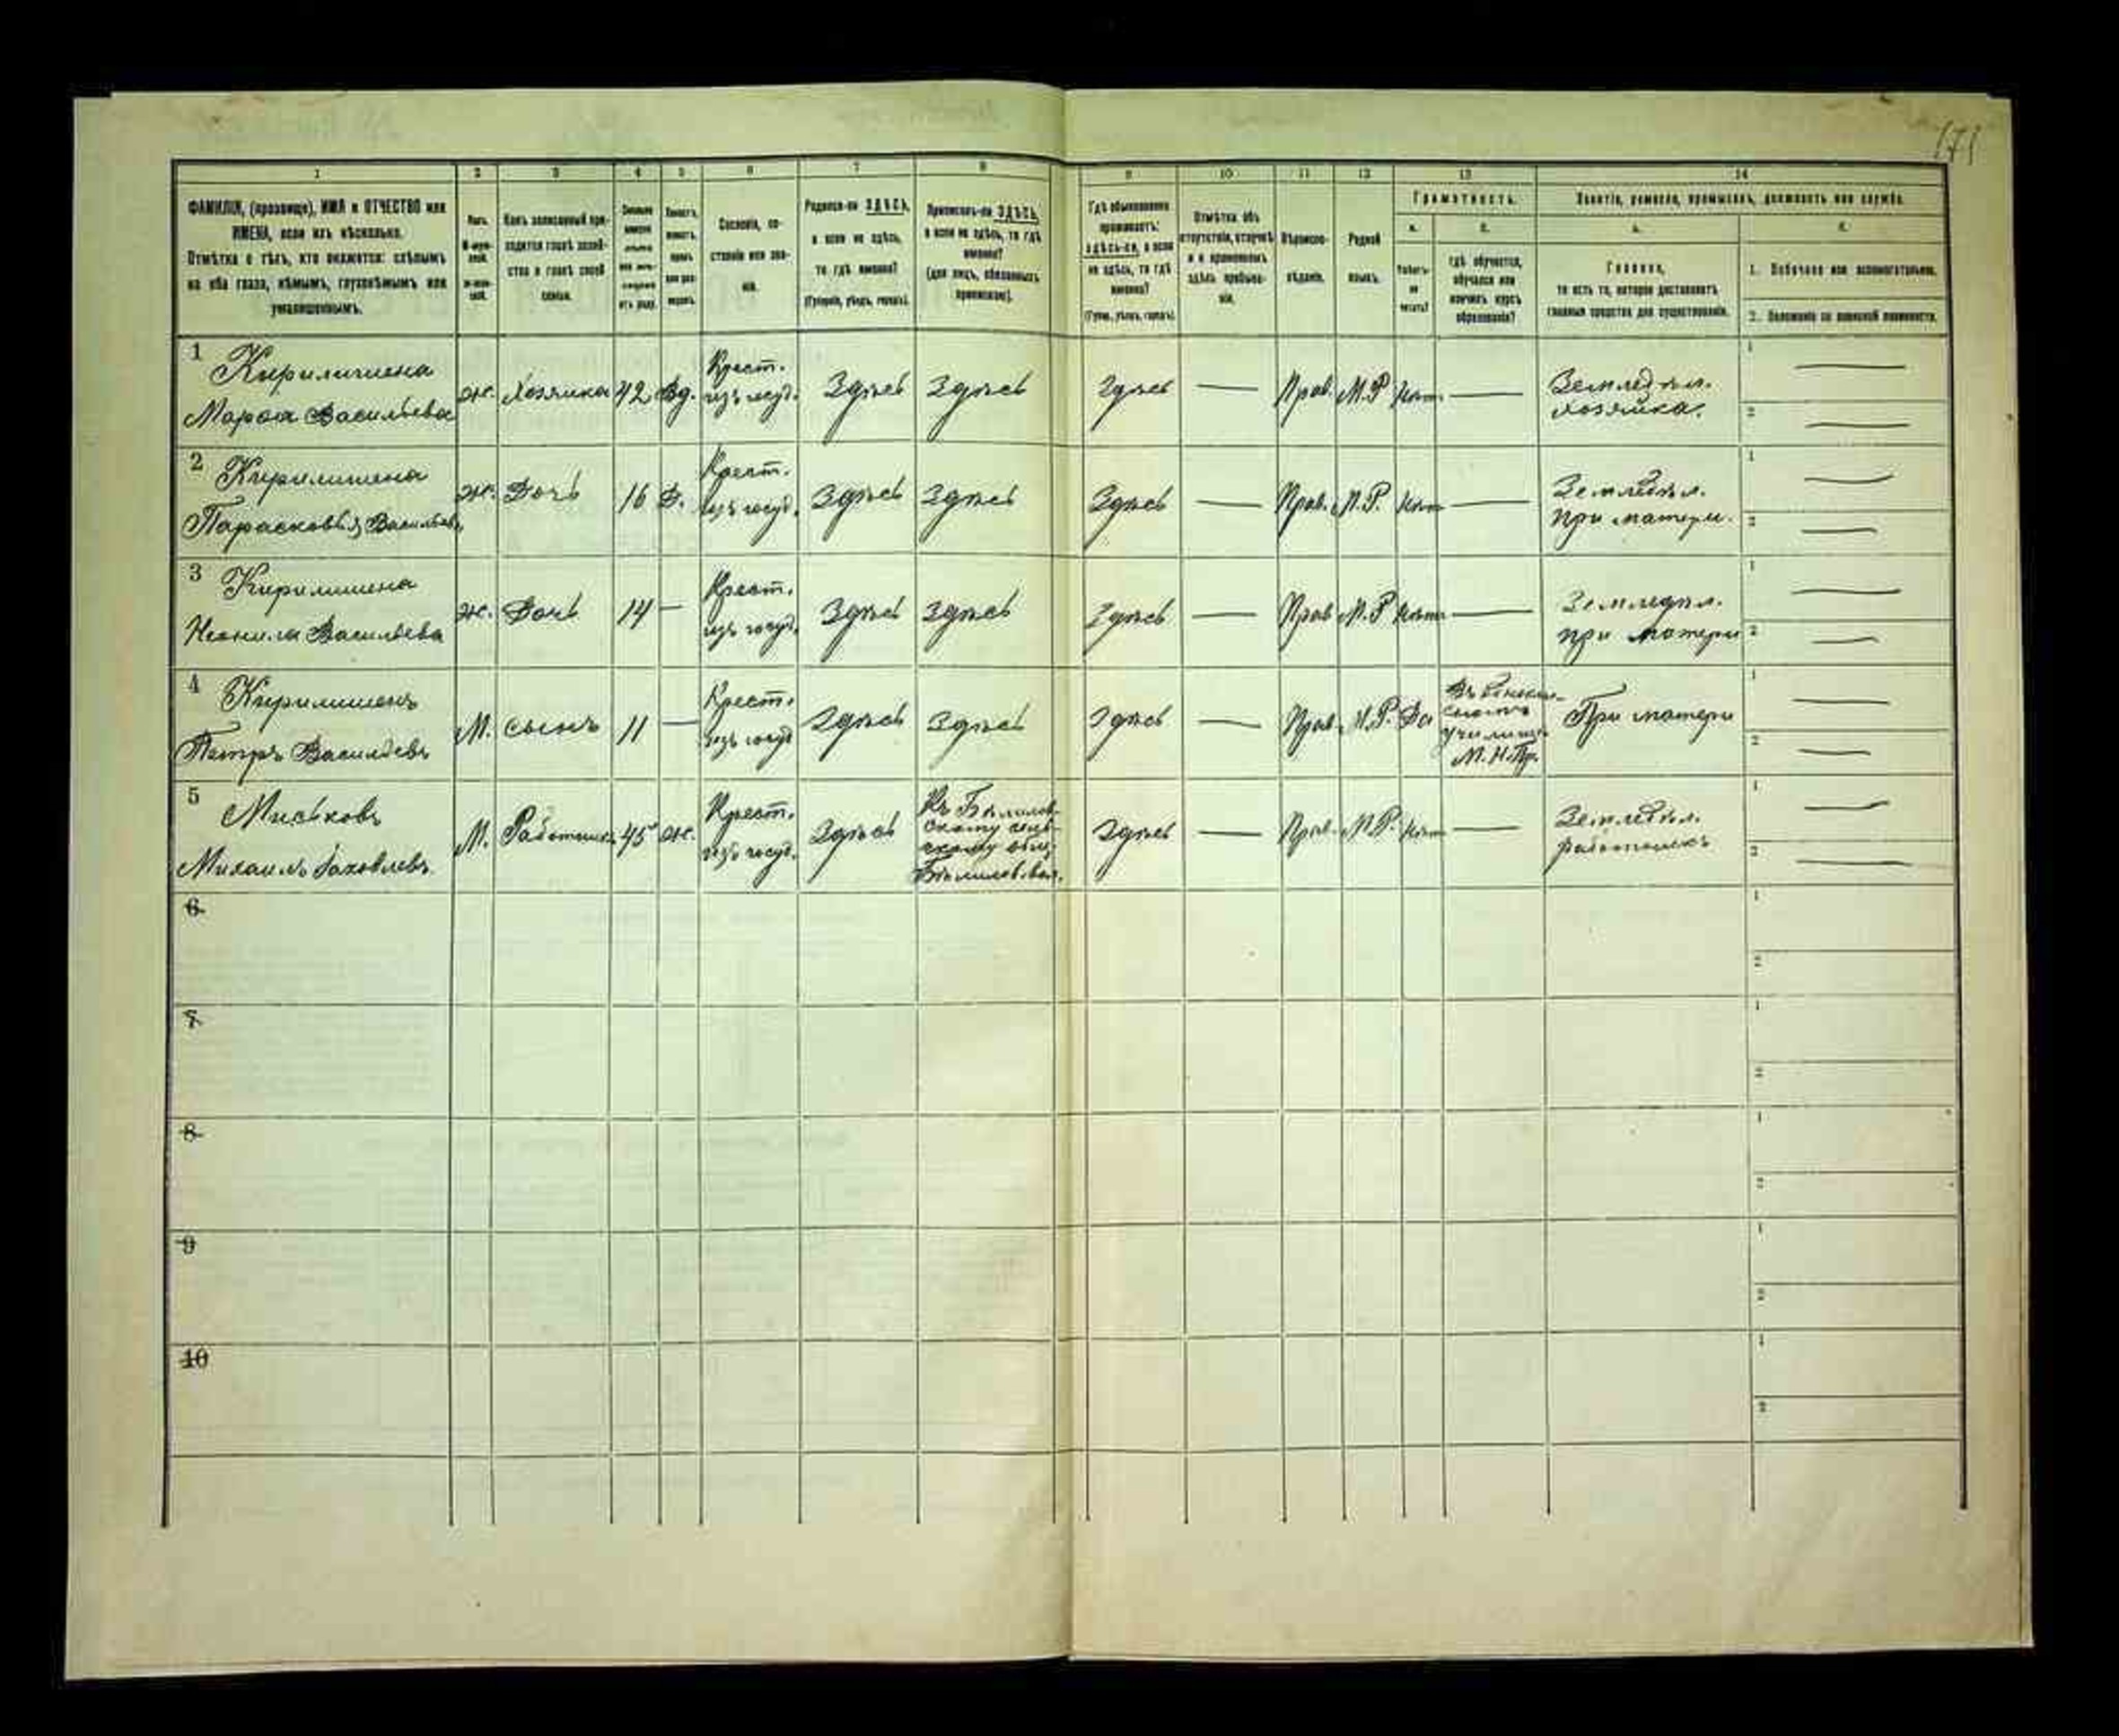 171
1 2 3 4 5 6 7 8 9 10 11 12 13 14
ФАМИЛІЯ, (прозвище), ИМЯ и ОТЧЕСТВО или
ИМЕНА, если ихъ нѣсколько.
Отмѣтка о тѣхъ, кто окажется: слѣпымъ
на оба глаза, нѣмымъ, глухонѣмымъ или
умалишеннымъ.
Полъ.
Какъ записанный при-
ходится главѣ хозяй-
ства и главѣ своей
семьи.
Сословіе, со-
стояніе или зва-
ніе.
Родился-ли ЗДѢСЬ,
а если не здѣсь,
то гдѣ именно?
(Губернія, уѣздъ, городъ).
Приписанъ-ли ЗДѢСЬ,
а если не здѣсь, то гдѣ
именно?
(для лицъ, обязанныхъ
припискою).
Гдѣ обыкновенно
проживаетъ:
здѣсь-ли, а если
не здѣсь, то гдѣ
именно?
(Губер., уѣздъ, городъ).
Отмѣтка объ
отсутствіи, отлучкѣ
и о временномъ
здѣсь пребыва-
ніи.
Вѣроиспо-
вѣданіе.
Родной
языкъ.
Грамотность.
а.
Умѣетъ-
ли
читать?
б.
гдѣ обучается,
обучался или
кончилъ курсъ
образованія?
Занятіе, ремесло, промыселъ, должность или служба.
а.
Главное,
то есть то, которое доставляетъ
главныя средства для существованія.
б.
1. Побочное или вспомогательное.
2. Положеніе по воинской повинности.
1 Кирилишена
Марѳа Васильева
ж. Хозяйка 42 Вд.
Крест.
изъ госуд.
Здѣсь Здѣсь Здѣсь — Прав. М.Р нѣт —
Земледѣл.
хозяйка.
1 —
2 —
2 Кирилишена
Парасковья Васильева
ж. Дочь 16 Д.
Крест.
изъ госуд.
Здѣсь Здѣсь Здѣсь — Прав. М.Р. нѣт —
Земледѣл.
при матери.
1 —
2 —
3 Кирилишена
Неонила Васильева
ж. Дочь 14 —
Крест.
изъ госуд.
Здѣсь Здѣсь Здѣсь — Прав М.Р нѣт —
Земледѣл.
при матери
1 —
2 —
4 Кирилишенъ
Петръ Васильевъ
М. сынъ 11 —
Крест.
изъ госуд
Здѣсь Здѣсь Здѣсь — Прав. М.Р. Да
Въ
училищ.
М.Н.Пр.
При матери
1 —
2 —
5 Миськовъ
Михаилъ Яковлевъ
М. Работникъ 45 ж.
Крест.
изъ госуд.
Здѣсь
Къ
скому сель-
скому общ.
Здѣсь — Прав. М.Р. нѣт —
Земледѣл.
работникъ
1 —
2 —
6
1
2
7
1
2
8
1
2
9
1
2
10
1
2